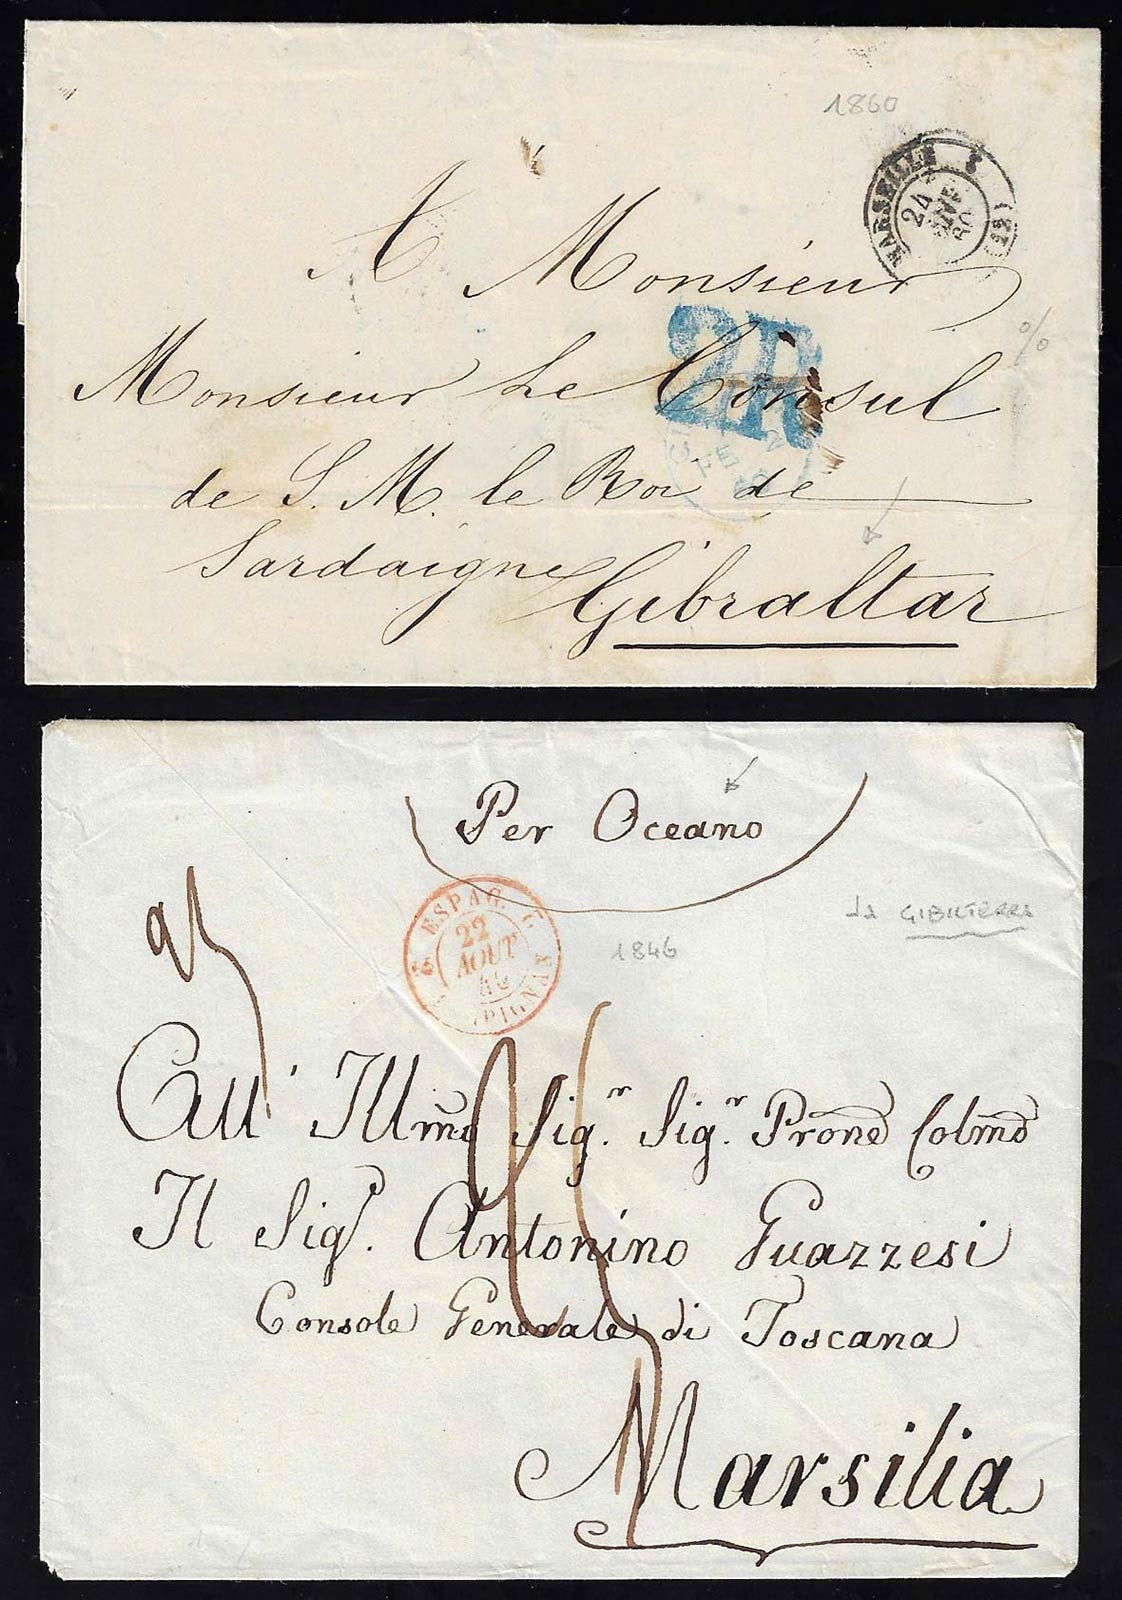 1860
MARSEILLE
24
60
A Monsieur
2R
%
Monsieur Le Consul
FE 2
de S. M. le Roi de
Sardaigne
Gibraltar
Per Oceano
ESPAG.
22
AOUT
46
da GIBILTERRA
1846
All' Illmo Sig.r Sig.r Prone Colmo
Il Sigr. Antonino Guazzesi
Console Generale di Toscana
Marsilia